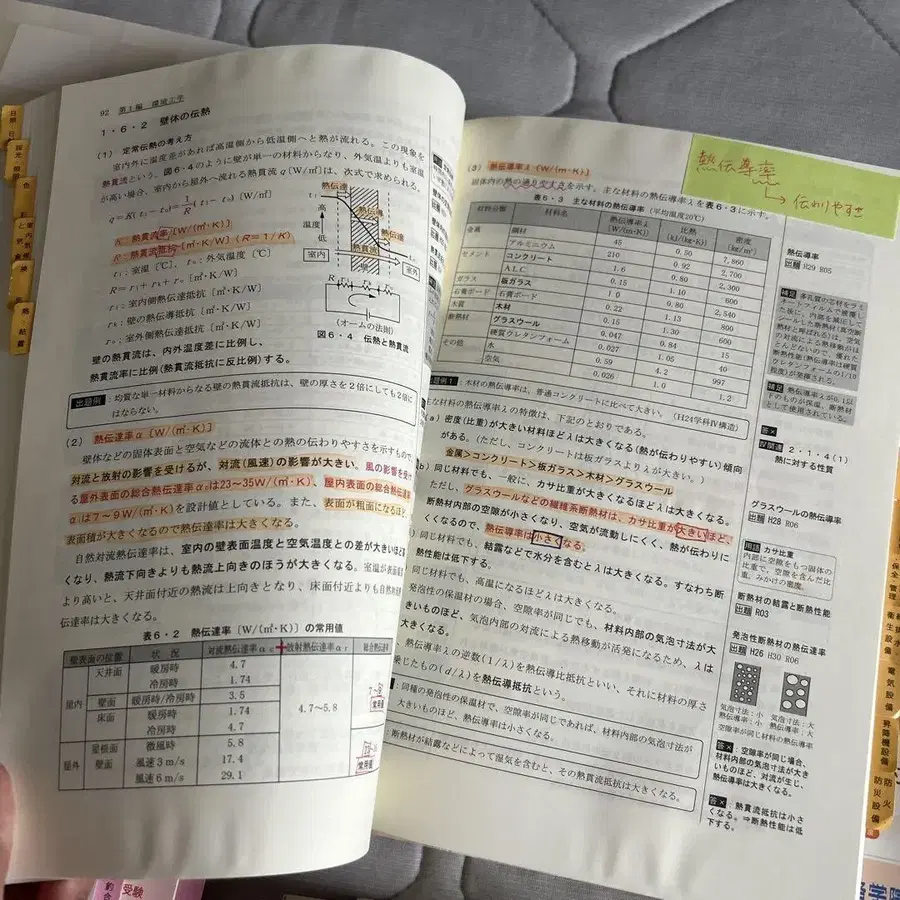 92 第1編 環境工学
1・6・2 壁体の伝熱
(1) 定常伝熱の考え方
室内外に温度差があれば高温側から低温側へと熱が流れる。この現象を
熱貫流という。図6・4のように壁が単一の材料からなり、外気温よりも室温
が高い場合、室内から屋外へ流れる熱貫流q〔W/㎡〕は、次式で求められる。
q=K(t₁−t₀)=1/R(t₁−t₀)〔W/㎡〕
K:熱貫流率〔W/(㎡・K)〕
R:熱貫流抵抗〔㎡・K/W〕(R=1/K)
t₁:室温〔℃〕、t₀:外気温度〔℃〕
〔㎡・K/W〕
室内側熱伝達抵抗〔㎡・K/W〕
壁の熱伝導抵抗〔㎡・K/W〕
室外側熱伝達抵抗〔㎡・K/W〕
熱伝達
温度
高
低
熱伝導
熱伝達
熱貫流
室内
壁
室外
(オームの法則)
図6・4 伝熱と熱貫流
壁の熱貫流は、内外温度差に比例し、
熱貫流率に比例(熱貫流抵抗に反比例)する。
出題例:均質な単一材料からなる壁の熱貫流抵抗は、壁の厚さを2倍にしても2倍に
はならない。
(2) 熱伝達率α〔W/(㎡・K)〕
壁体などの固体表面と空気などの流体との熱の伝わりやすさを示すもので
対流と放射の影響を受けるが、対流(風速)の影響が大きい。風の影響を受け
る屋外表面の総合熱伝達率α₀は23〜35W/(㎡・K)、屋内表面の総合熱伝達率
α₁は7〜9W/(㎡・K)を設計値としている。また、表面が粗面になるほど
表面積が大きくなるので熱伝達率は大きくなる。
自然対流熱伝達率は、室内の壁表面温度と空気温度との差が大きいほど
くなり、熱流下向きよりも熱流上向きのほうが大きくなる。室温が表面温
より高いと、天井面付近の熱流は上向きとなり、床面付近よりも自然対流
伝達率は大きくなる。
表6・2 熱伝達率〔W/(㎡・K)〕の常用値
壁表面の位置 状況 対流熱伝達率αc + 放射熱伝達率αr 総合熱伝達率
屋内 天井面 暖房時 4.7 4.7〜5.8 7〜9 常用値
冷房時 1.74
壁面 暖房時/冷房時 3.5
床面 暖房時 1.74
冷房時 4.7
屋外 屋根面 壁面 微風時 5.8 常用値
風速3m/s 17.4
風速6m/s 29.1
(3) 熱伝導率λ〔W/(m・K)〕
固体内の熱の通りやすさを示す。主な材料の熱伝導率λを表6・3に示す。
表6・3 主な材料の熱伝導率 (平均温度20℃)
材料分類 材料名 熱伝導率λ〔W/(m・K)〕 比熱〔kJ/(kg・K)〕 密度〔kg/㎥〕
金属 鋼材 45 0.50 7,860
アルミニウム 210 0.92 2,700
セメント コンクリート 1.6 0.80 2,300
ALC 0.15 1.10 600
ガラス 板ガラス 1.0 0.80 2,540
石膏ボード 石膏ボード 0.22 1.13 800
木質 木材 0.15 1.30 600
断熱材 グラスウール 0.047 0.84 15
硬質ウレタンフォーム 0.027 1.05 40
その他 水 0.59 4.2 997
空気 0.026 1.0 1.2
出題例1:木材の熱伝導率は、普通コンクリートに比べて大きい。(H24学科Ⅳ構造)
主な材料の熱伝導率λの特徴は、下記のとおりである。
(a) 密度(比重)が大きい材料ほどλは大きくなる(熱が伝わりやすい)傾向
がある。(ただし、コンクリートは板ガラスよりλが大きい。)
金属>コンクリート>板ガラス>木材>グラスウール
(b) 同じ材料でも、一般に、カサ比重が大きくなるほどλは大きくなる。
ただし、グラスウールなどの繊維系断熱材は、カサ比重が大きいほど、
断熱材内部の空隙が小さくなり、空気が流動しにくく、熱が伝わりに
くくなるので、熱伝導率は小さくなる。
同じ材料でも、結露などで水分を含むとλは大きくなる。すなわち断
熱性能は低下する。
同じ材料でも、高温になるほどλは大きくなる。
発泡性の保温材の場合、空隙率が同じでも、材料内部の気泡寸法が大
きいものほど、気泡内部の対流による熱移動が活発になるため、λは
大きくなる。
熱伝導率λの逆数(1/λ)を熱伝導比抵抗といい、それに材料の厚さ
乗じたもの(d/λ)を熱伝導抵抗という。
:同種の発泡性の保温材で、空隙率が同じであれば、材料内部の気泡寸法が
大きいものほど、熱伝導率は小さくなる。
:断熱材が結露などによって湿気を含むと、その熱貫流抵抗は大きくなる。
熱伝導率
→伝わりやすさ
熱伝導率
出題 H29 R05
補足 多孔質の芯材をラミネートフィルムで被覆した後に、内部を減圧してシールした断熱材(真空断熱材と呼ばれる)は、空気の対流による熱移動がほとんどないので、優れた断熱性能(熱伝導率で硬質ウレタンフォームの1/10程度)が発揮される。
補足 熱伝導率λが0.1以下のものが保温、断熱材として使用されている。
答×
Ⅳ関連 2・1・4(1)
熱に対する性質
グラスウールの熱伝導率
出題 H28 R06
用語 カサ比重
内部に空隙をもつ固体の比重で、空隙を含んだ比重。みかけの密度。
断熱材の結露と断熱性能
出題 R03
発泡性断熱材の熱伝導率
出題 H26 H30 R06
気泡寸法:小 気泡寸法:大
熱伝導率:小 熱伝導率:大
空隙率が同じ材料の熱伝導率
答×:空隙率が同じ場合、
材料内部の気泡寸法が大き
いものほど、対流が生じ、
熱伝導率は大きくなる。
答×:熱貫流抵抗は小さ
くなる。⇒断熱性能は低
下する。
色
換
熱
結露
保全管理
衛生
電気設備
昇降機設備
防災設備
防火
受験